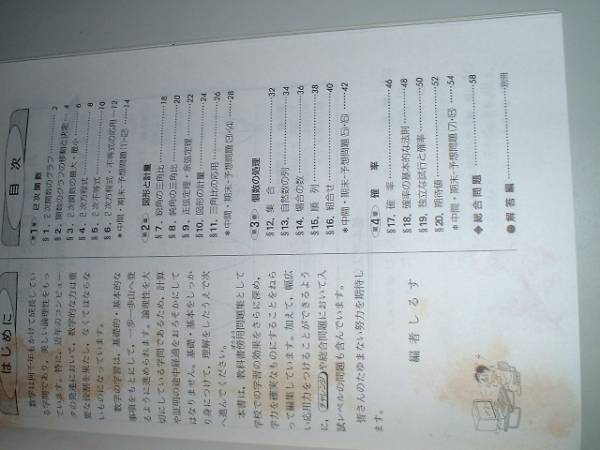 はじめに
数学は何千年もかけて成長してい
る学問であり，美しい論理性をもっ
ています。特に，近年のコンピュー
タの発達において，数学的な力は重
要な役割を果たし，なくてはならな
いものになっています。
数学の学習は，基礎的・基本的な
事項をもとにして，一歩一歩山へ登
るように進められます。論理性を大
切にしている学問であるため，計算
や証明の途中経過をおろそかにして
はなりません。基礎・基本をしっか
り身につけて，理解をしたうえで次
へ進んでください。
本書は，教科書傍用問題集として
学校での学習の効果をさらに深め，
学力を確実なものにすることをねら
って編集しています。加えて，幅広
い応用力をつけることができるよう
に，チャレンジや総合問題において入
試レベルの問題も含んでいます。
皆さんのたゆまない努力を期待し
ます。
編者しるす
目次
第1章 2次関数
§1. 2次関数のグラフ 2
§2. 関数のグラフの移動と決定 4
§3. 2次関数の最大・最小 6
§4. 2次方程式 8
§5. 2次不等式 10
§6. 2次方程式・不等式の応用 12
*中間・期末予想問題(1)・(2) 14
第2章 図形と計量
§7. 鋭角の三角比 18
§8. 鈍角の三角比 20
§9. 正弦定理・余弦定理 22
§10. 図形の計量 24
§11. 三角比の応用 26
*中間・期末予想問題(3)・(4) 28
第3章 個数の処理
§12. 集合 32
§13. 自然数の列 34
§14. 場合の数 36
§15. 順列 38
§16. 組合せ 40
*中間・期末予想問題(5)・(6) 42
第4章 確率
§17. 確率 46
§18. 確率の基本的な法則 48
§19. 独立な試行と確率 50
§20. 期待値 52
*中間・期末予想問題(7)・(8) 54
◆総合問題 58
●解答編 別冊